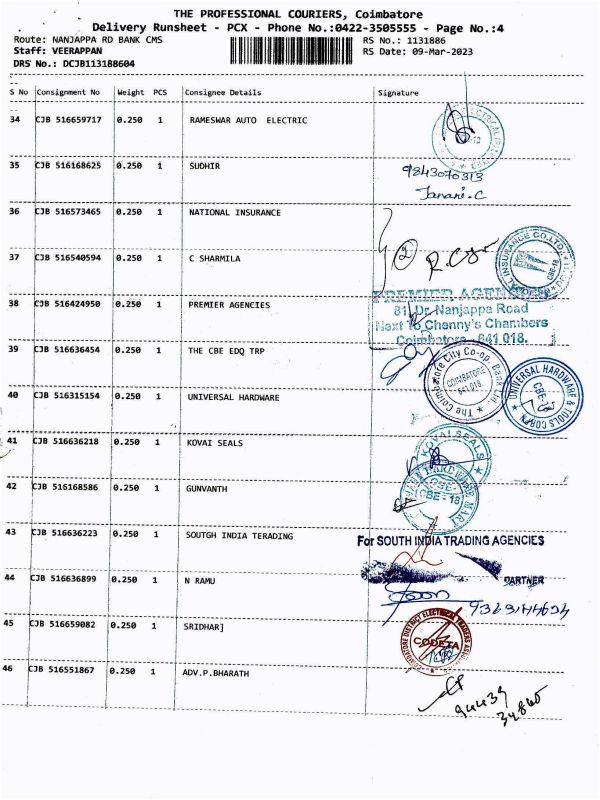 THE PROFESSIONAL COURIERS, Coimbatore
Delivery Runsheet - PCX - Phone No.:0422-3505555 - Page No.:4
Route: NANJAPPA RD BANK CMS RS No.: 1131886
Staff: VEERAPPAN RS Date: 09-Mar-2023
DRS No.: DCJB113188604
S No Consignment No Weight PCS Consignee Details Signature
34 CJB 516659717 0.250 1 RAMESWAR AUTO ELECTRIC
35 CJB 516168625 0.250 1 SUDHIR
9843070313
Janani.C
36 CJB 516573465 0.250 1 NATIONAL INSURANCE
INSURANCE CO.LTD.
CBE-18
37 CJB 516540594 0.250 1 C SHARMILA
2
38 CJB 516424950 0.250 1 PREMIER AGENCIES
PREMIER AGENCIES
81, Dr. Nanjappa Road
Next To Chenny's Chambers
Coimbatore - 641 018.
39 CJB 516636454 0.250 1 THE CBE EDQ TRP
The Coimbatore City Co-op. Bank Ltd
COIMBATORE
641 018.
40 CJB 516315154 0.250 1 UNIVERSAL HARDWARE
UNIVERSAL HARDWARE & TOOLS CORPN
41 CJB 516636218 0.250 1 KOVAI SEALS
KOVAI SEALS
42 CJB 516168586 0.250 1 GUNVANTH
HARDWARE MART
CBE - 18
43 CJB 516636223 0.250 1 SOUTGH INDIA TERADING
For SOUTH INDIA TRADING AGENCIES
PARTNER
44 CJB 516636899 0.250 1 N RAMU
45 CJB 516659082 0.250 1 SRIDHAR]
COIMBATORE DISTRICT ELECTRICAL TRADERS
CODETA
46 CJB 516551867 0.250 1 ADV.P.BHARATH
94439
34860